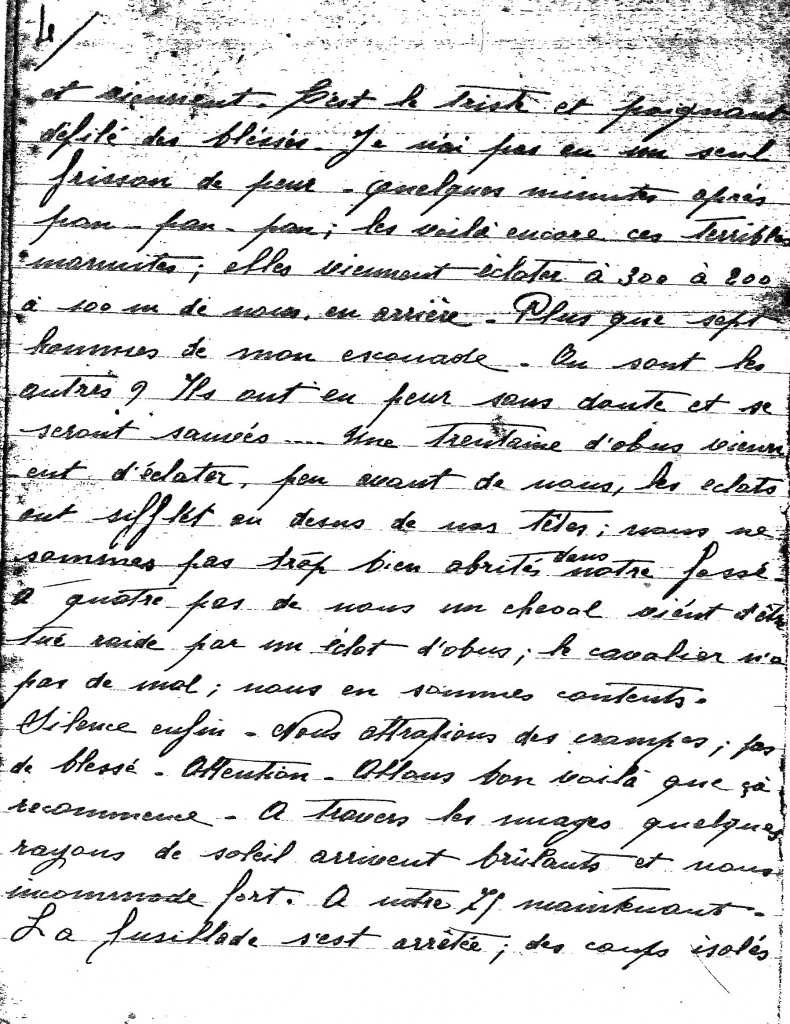 4/
et viennent. C'est le triste et poignant
défilé des bléssés. Je n'ai pas eu un seul
frisson de peur - quelques minutes aprés
pan - pan - pan; les voilà encore ces terribles
marmites; elles viennent éclater à 300 à 200
à 100 m de nous, en arrière - Plus que sept
hommes de mon escouade - Ou sont les
autres ? Ils ont eu peur sans doute et se
seront sauvés .... Une trentaine d'obus vienn
ent d'éclater, peu avant de nous, les éclats
ont sifflét au desus de nos têtes; nous ne
sommes pas trop bien abrités dans notre fossé -
à quatre pas de nous un cheval vient d'être
tué raide par un éclat d'obus; le cavalier n'a
pas de mal; nous en sommes contents.
Silence enfin - Nous attrapions des crampes; pas
de blessé - Attention - Allons bon voilà que çà
recommence - A travers les nuages quelques
rayons de soleil arrivent brûlants et nous
incommode fort. A notre 75 maintenant -
La fusillade s'est arrêtée; des coups isolés